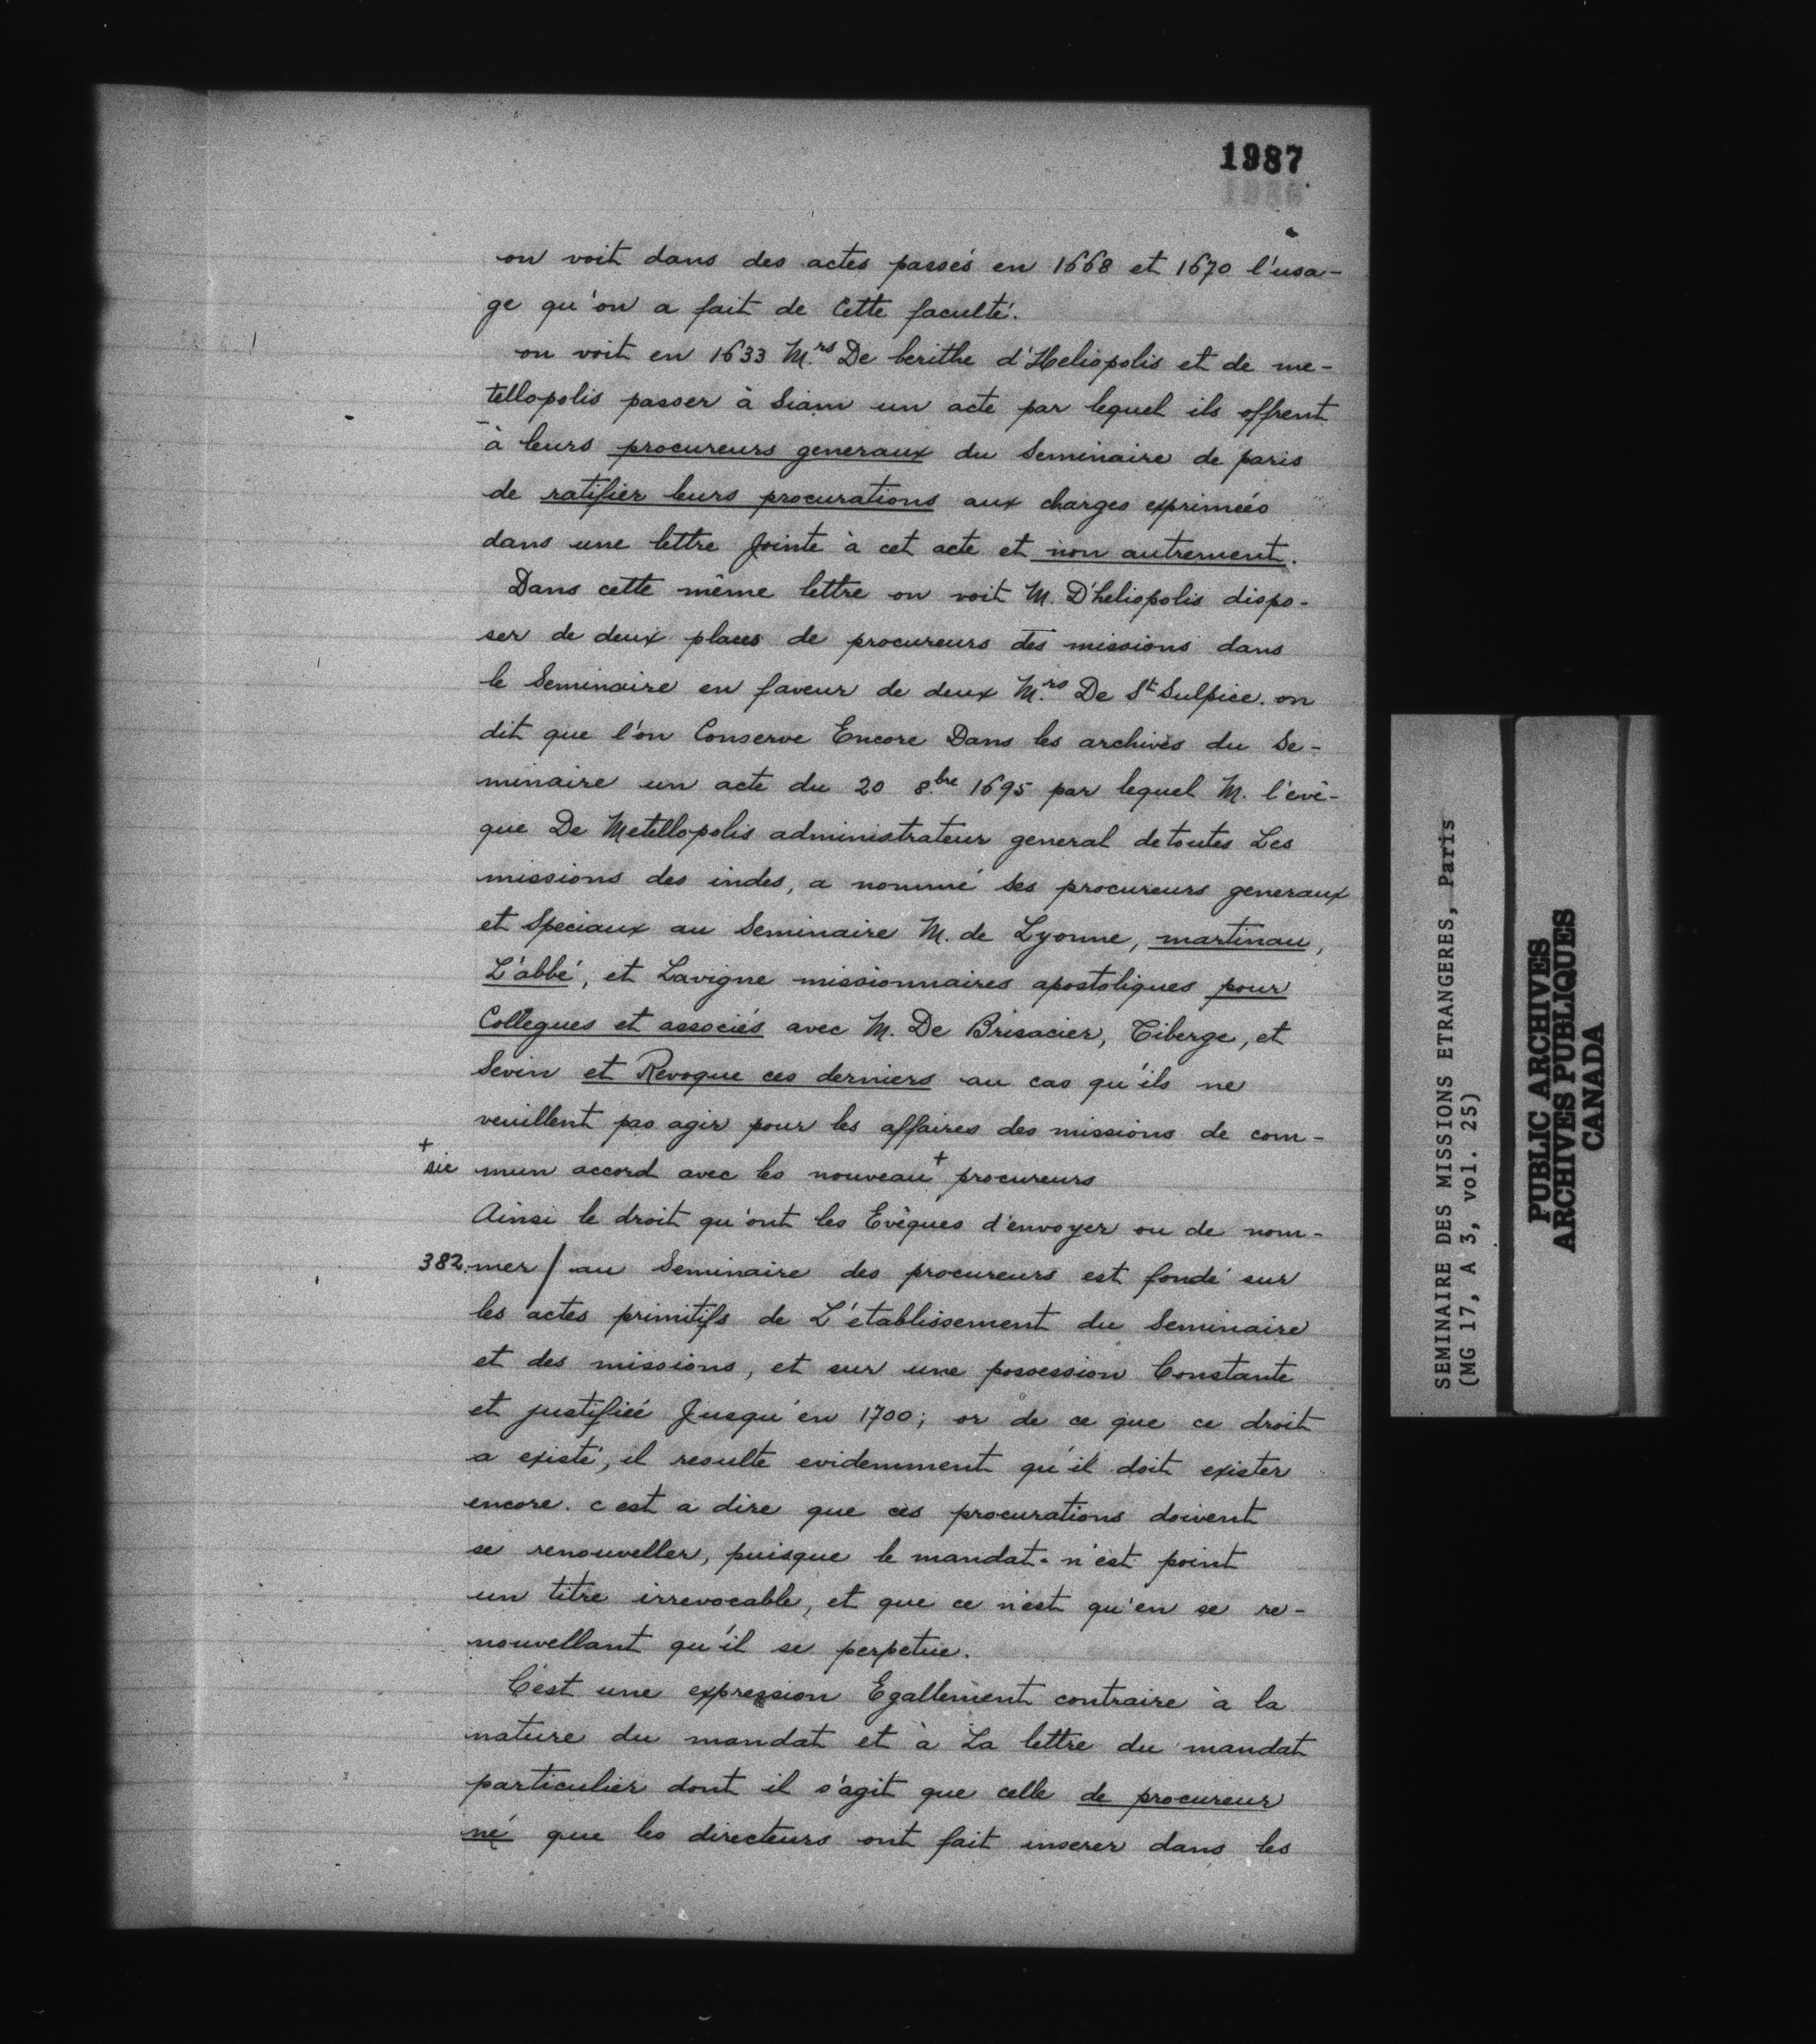 1987
on voit dans des actes passés en 1668 et 1670 l'usa-
ge qu'on a fait de Cette faculté.
on voit en 1633 M.rs De berithe d'Heliopolis et de me-
tellopolis passer à Siam un acte par lequel ils offrent
à leurs procureurs generaux du Seminaire de paris
de ratifier leurs procurations aux charges exprimées
dans une lettre Jointe à cet acte et non autrement.
Dans cette même lettre on voit M. D'heliopolis dispo-
ser de deux places de procureurs des missions dans
le Seminaire en faveur de deux M.rs De St Sulpice. on
dit que l'on Conserve Encore Dans les archives du Se-
minaire un acte du 20 8.bre 1695 par lequel M. l'evê-
que De Metellopolis administrateur general de toutes Les
missions des indes, a nommé ses procureurs generaux
et Speciaux au Seminaire M. de Lyonne, martinau,
L'abbé, et Lavigne missionnaires apostoliques pour
Collegues et associés avec M. De Brisacier, Tiberge, et
Sevin et Revoque ces derniers au cas qu'ils ne
veuillent pas agir pour les affaires des missions de com-
+ sic mun accord avec les nouveau+ procureurs
Ainsi le droit qu'ont les Evêques d'envoyer ou de nom-
382. mer / au Seminaire des procureurs est fondé sur
les actes primitifs de L'établissement du Seminaire
et des missions, et sur une possession Constante
et justifiée Jusqu'en 1700; or de ce que ce droit
a existé, il resulte evidemment qu'il doit exister
encore. c est a dire que ces procurations doivent
se renouveller, puisque le mandat. n'est point
un titre irrevocable, et que ce n'est qu'en se re-
nouvellant qu'il se perpetue.
C'est une expression Egallement contraire à la
nature du mandat et à La lettre du mandat
particulier dont il s'agit que celle de procureur
né que les directeurs ont fait inserer dans les
SEMINAIRE DES MISSIONS ETRANGERES, Paris
(MG 17, A 3, vol. 25)
PUBLIC ARCHIVES
ARCHIVES PUBLIQUES
CANADA